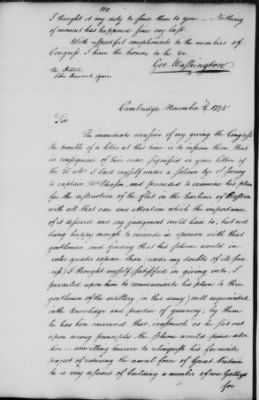 110
I thought it my duty to send them to you — Nothing
of moment has happened since my last.
With respectful compliments to the members of
Congress. I have the honor to be &c.
Geo. Washington
John Hancock Esqre
Cambridge November 8, 1775
Sir
The immediate occasion of my giving the Congress
the trouble of a letter at this time is to inform them that
in consequence of their order signified in your letter of
the I laid myself under a solemn tye of secrecy
to captain McPherson, and proceeded to examine his plan
for the destruction of the fleet in the harbour of Boston
with all that care and attention which the importance
of it deserved and my judgement could lead to, but not
being happy enough to coincide in opinion with that
gentleman and finding that his scheme would in-
volve greater expence than (under my doubts of its suc-
cess) I thought myself justified in giving into. I
prevailed upon him to communicate his plan to three
gentlemen of the artillery (in this army) well acquainted
in the knowledge and practice of gunnery; by them
he has been convinced that, inasmuch as he set out
upon wrong principles the scheme would prove abor-
tive — unwilling however to relinquish his favourite
project of reducing the naval force of Great Britain
he is very desirous of building a number of row Galleys
for